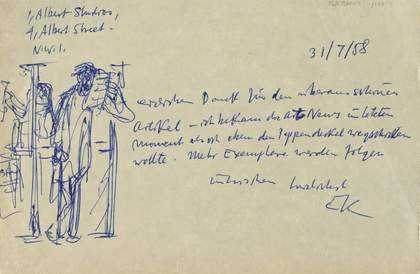 1, Albert Studios,
4, Albert Street.
N.W.1.
31/7/58
Herzlichen Dank für den überaus schönen
Artikel – ich bekam die Art News im letzten
Moment als ich eben den Pappendeckel wegschmeissen
wollte. Mehr Exemplare werden folgen
inzwischen herzlichst
EK